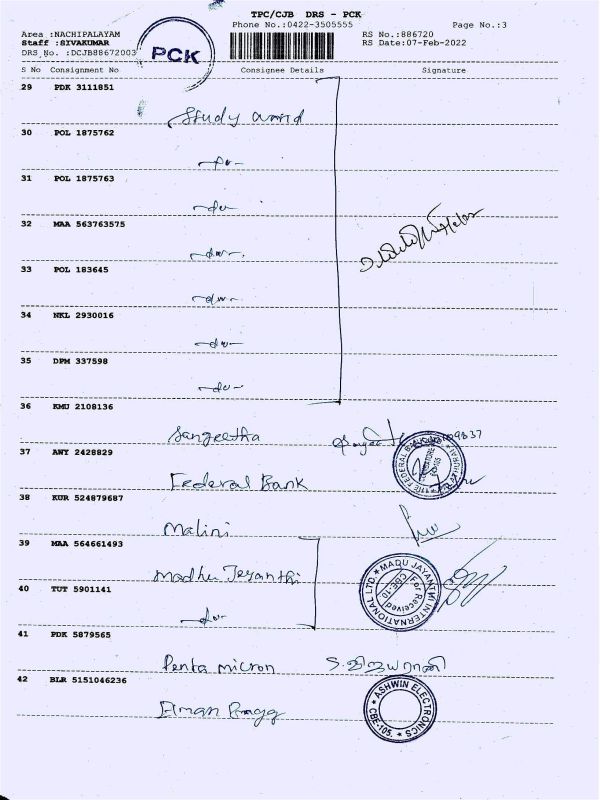 TPC/CJB DRS - PCK
Phone No.:0422-3505555
Page No.:3
Area :NACHIPALAYAM
Staff :SIVAKUMAR
DRS No. :DCJB88672003
PCK
RS No.:886720
RS Date:07-Feb-2022
S No Consignment No Consignee Details Signature
29 PDK 3111851
Study
30 POL 1875762
31 POL 1875763
-do-
32 MAA 563763575
33 POL 183645
34 NKL 2930016
-do-
35 DPM 337598
-do-
36 KMU 2108136
Sangeetha
37 AWY 2428829
Federal Bank
38 KUR 524879687
Malini
39 MAA 564661493
Madhu Jeyanthi
MADU JAYANTHI INTERNATIONAL LTD.
CBE-10
For Received
40 TUT 5901141
-do-
41 PDK 5879565
Penta micron
42 BLR 5151046236
ASHWIN ELECTRONICS
CBE-105.